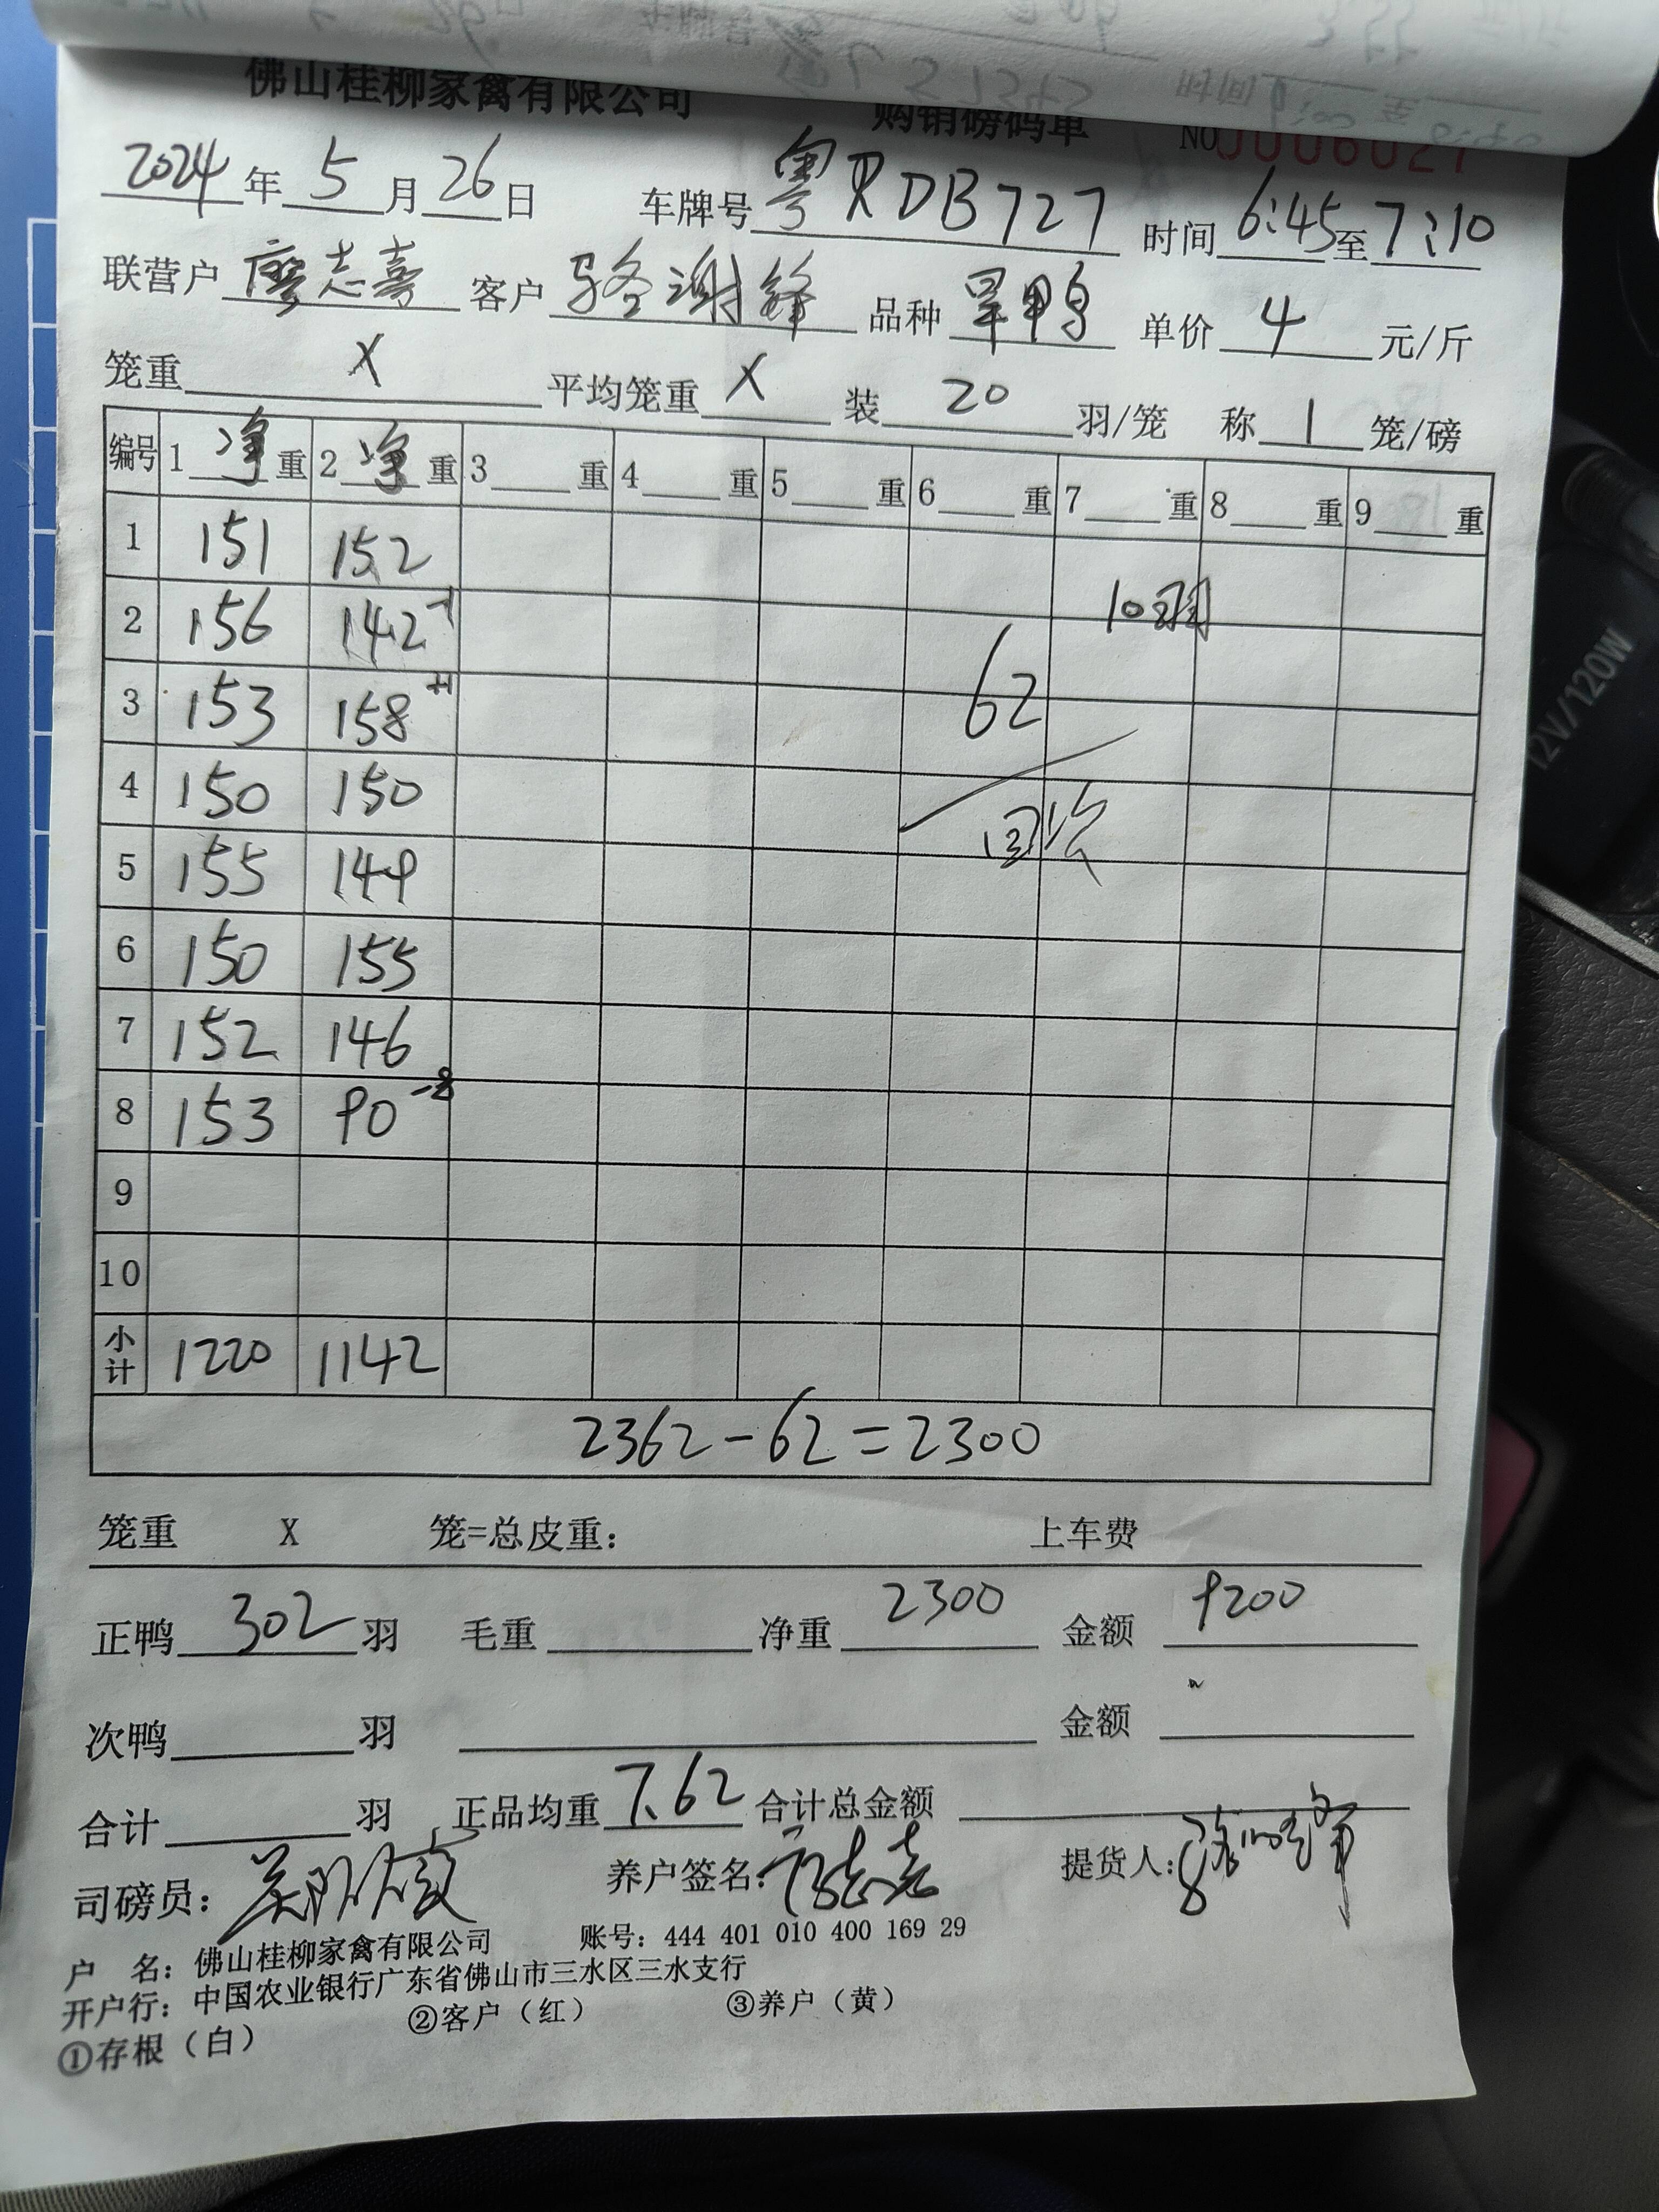 佛山桂柳家禽有限公司 购销磅码单 NO 0006027
2024年5月26日 车牌号 粤RDB727 时间 6:45至7:10
联营户 廖志喜 客户 骆谢锋 品种 旱鸭 单价 4 元/斤
笼重 X 平均笼重 X 装 20 羽/笼 称 1 笼/磅
编号 1 净 重 2 净 重 3 重 4 重 5 重 6 重 7 重 8 重 9 重
1 151 152
2 156 142 -1 10羽
3 153 158 +1 62
4 150 150 回收
5 155 149
6 150 155
7 152 146
8 153 90 -8
9
10
小计 1220 1142
2362-62=2300
笼重 X 笼=总皮重: 上车费
正鸭 302 羽 毛重 净重 2300 金额 9200
次鸭 羽 金额
合计 羽 正品均重 7.62 合计总金额
司磅员: 养户签名: 廖志喜 提货人:
户 名: 佛山桂柳家禽有限公司 账号: 444 401 010 400 169 29
开户行: 中国农业银行广东省佛山市三水区三水支行
①存根（白） ②客户（红） ③养户（黄）
12V/120W